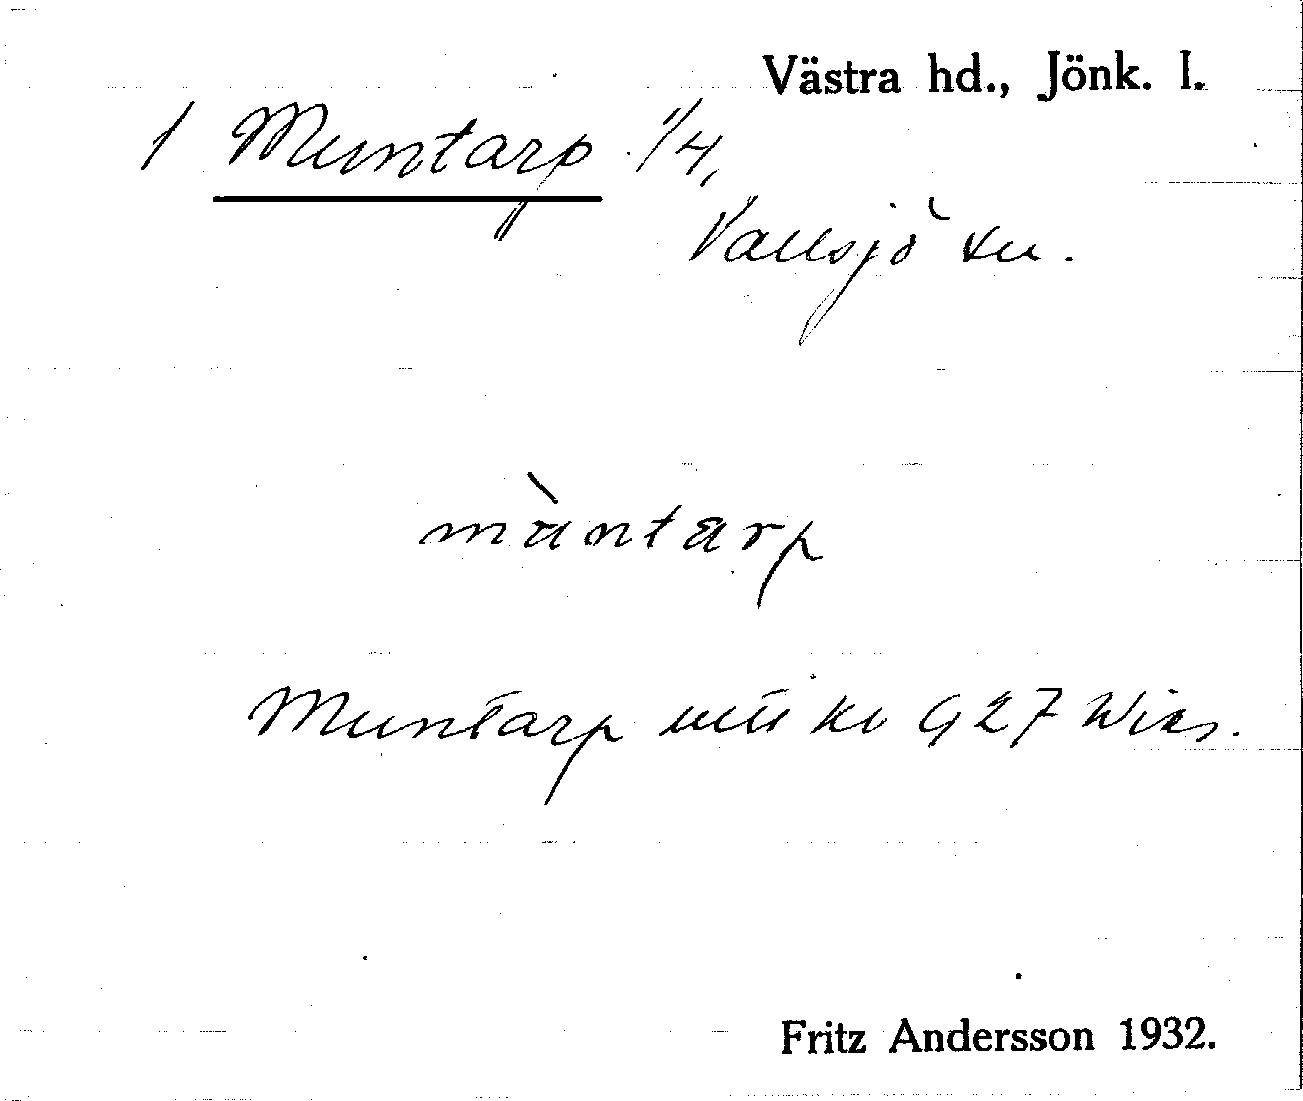 Västra hd., Jönk. l.
1 Muntarp 1/4,
Vallsjö sn.
mùntarp
Muntarp 927
Fritz Andersson 1932.